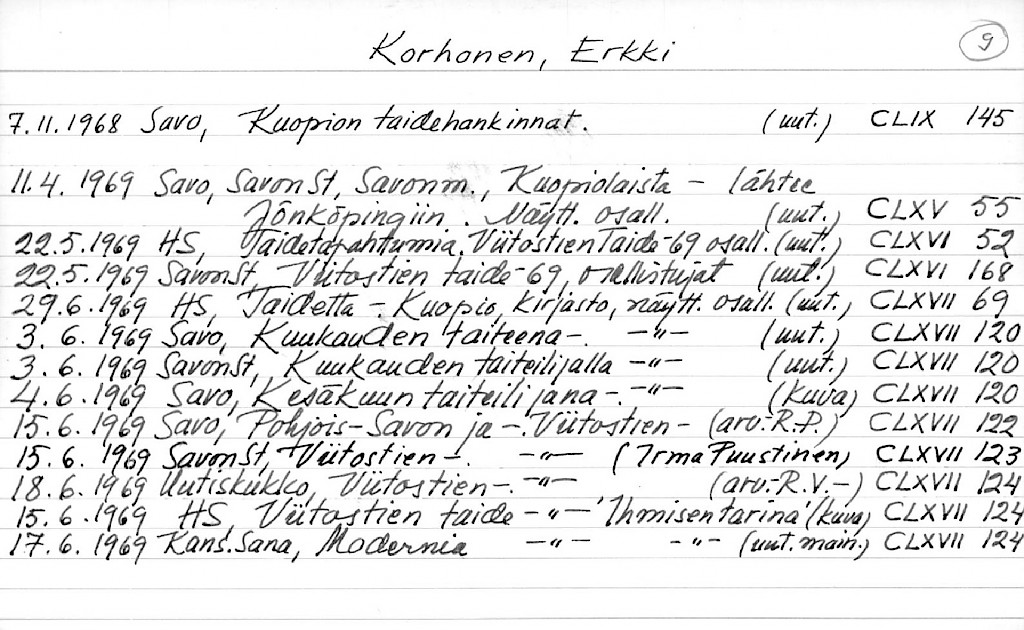 Korhonen, Erkki 9
7.11.1968 Savo, Kuopion taidehankinnat. (uut.) CLIX 145
11.4. 1969 Savo, SavonSt, Savonm., Kuopiolaista - lähtee
Jönköpingiin. Näytt. osall. (uut.) CLXV 55
22.5.1969 HS, Taidetapahtumia, Viitostien Taide-69 osall. (uut.) CLXVI 52
22.5.1969 SavonSt, Viitostien taide-69, osallistujat (uut.) CLXVI 168
29.6.1969 HS, Taidetta - Kuopio, kirjasto, näytt. osall. (uut.) CLXVII 69
3. 6. 1969 Savo, Kuukauden taiteena-. -"- (uut.) CLXVII 120
3. 6. 1969 SavonSt, Kuukauden taiteilijalla -"- (uut.) CLXVII 120
4.6.1969 Savo, Kesäkuun taiteilijana-. -"- (kuva) CLXVII 120
15.6.1969 Savo, Pohjois-Savon ja -. Viitostien - (arv.-R.P.) CLXVII 122
15.6.1969 SavonSt, Viitostien -. -"- (Irma Puustinen) CLXVII 123
18.6.1969 Uutiskukko, Viitostien-. -"- (arv.-R.V.-) CLXVII 124
15.6.1969 HS, Viitostien taide -"- 'Ihmisen tarina' (kuva) CLXVII 124
17.6.1969 Kans.Sana, Modernia -"- -"- (uut. main.) CLXVII 124